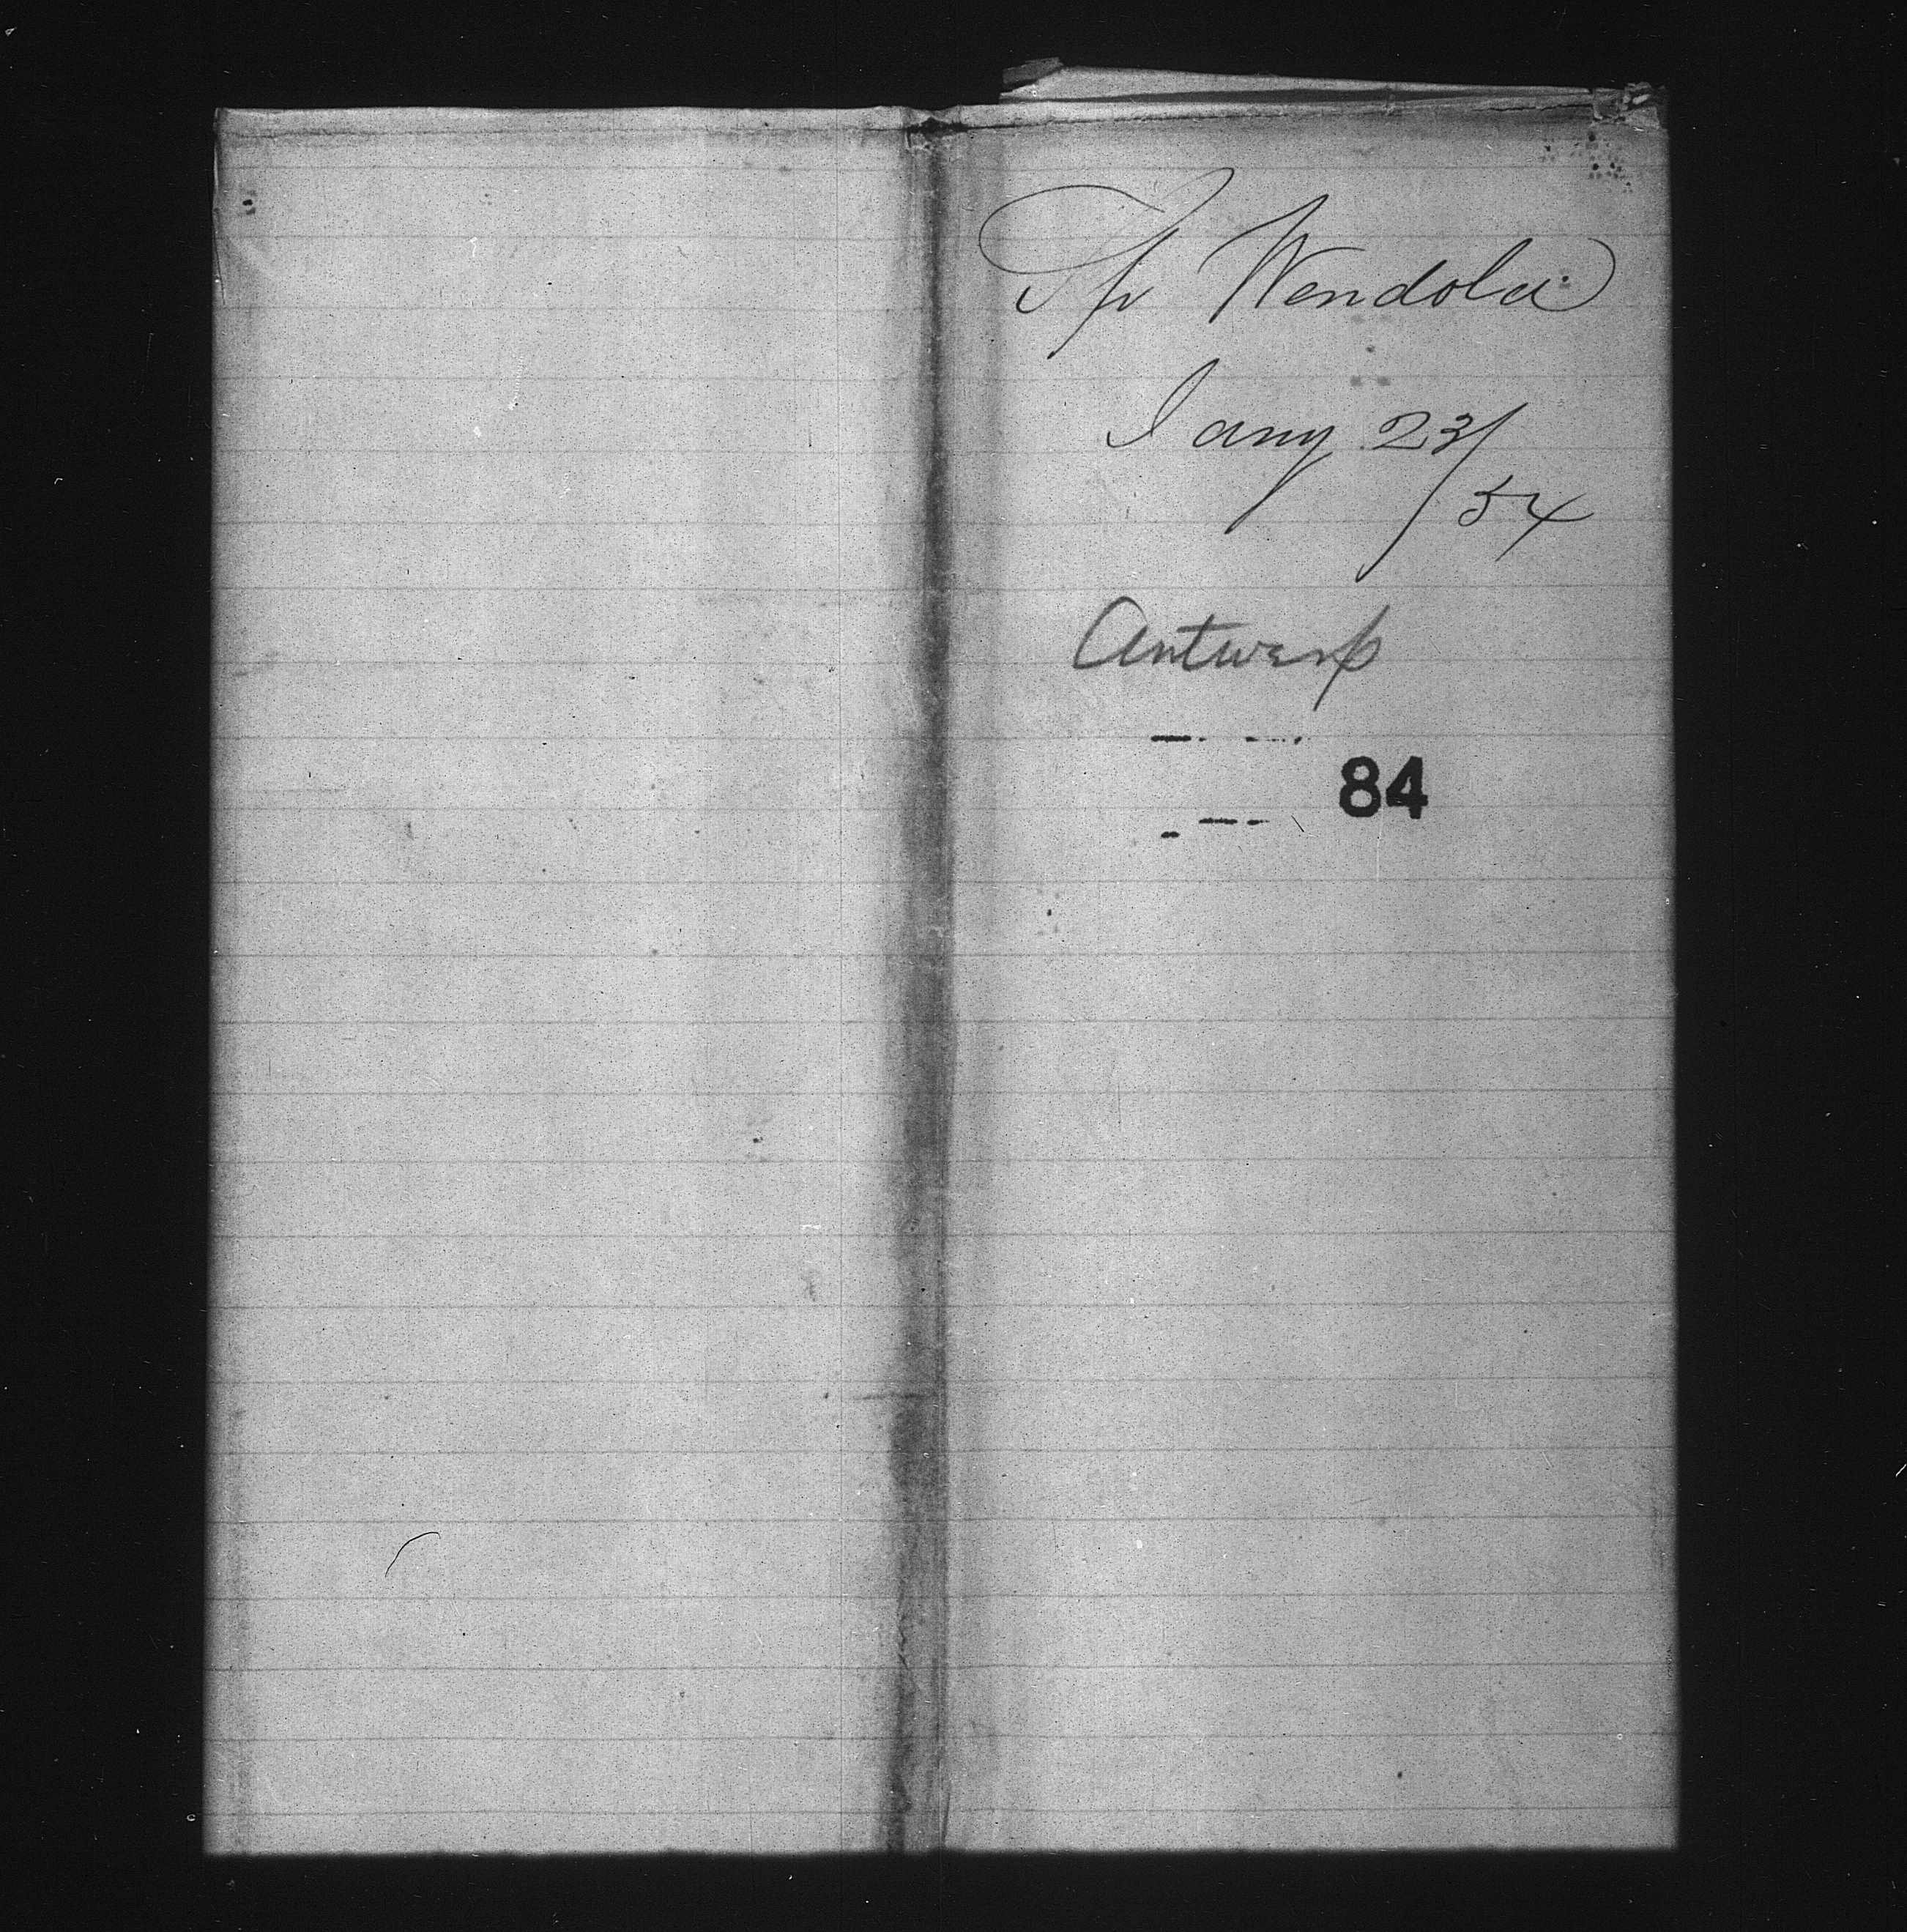 Sp Wendola
Jany 23/
54
Antwerp
84